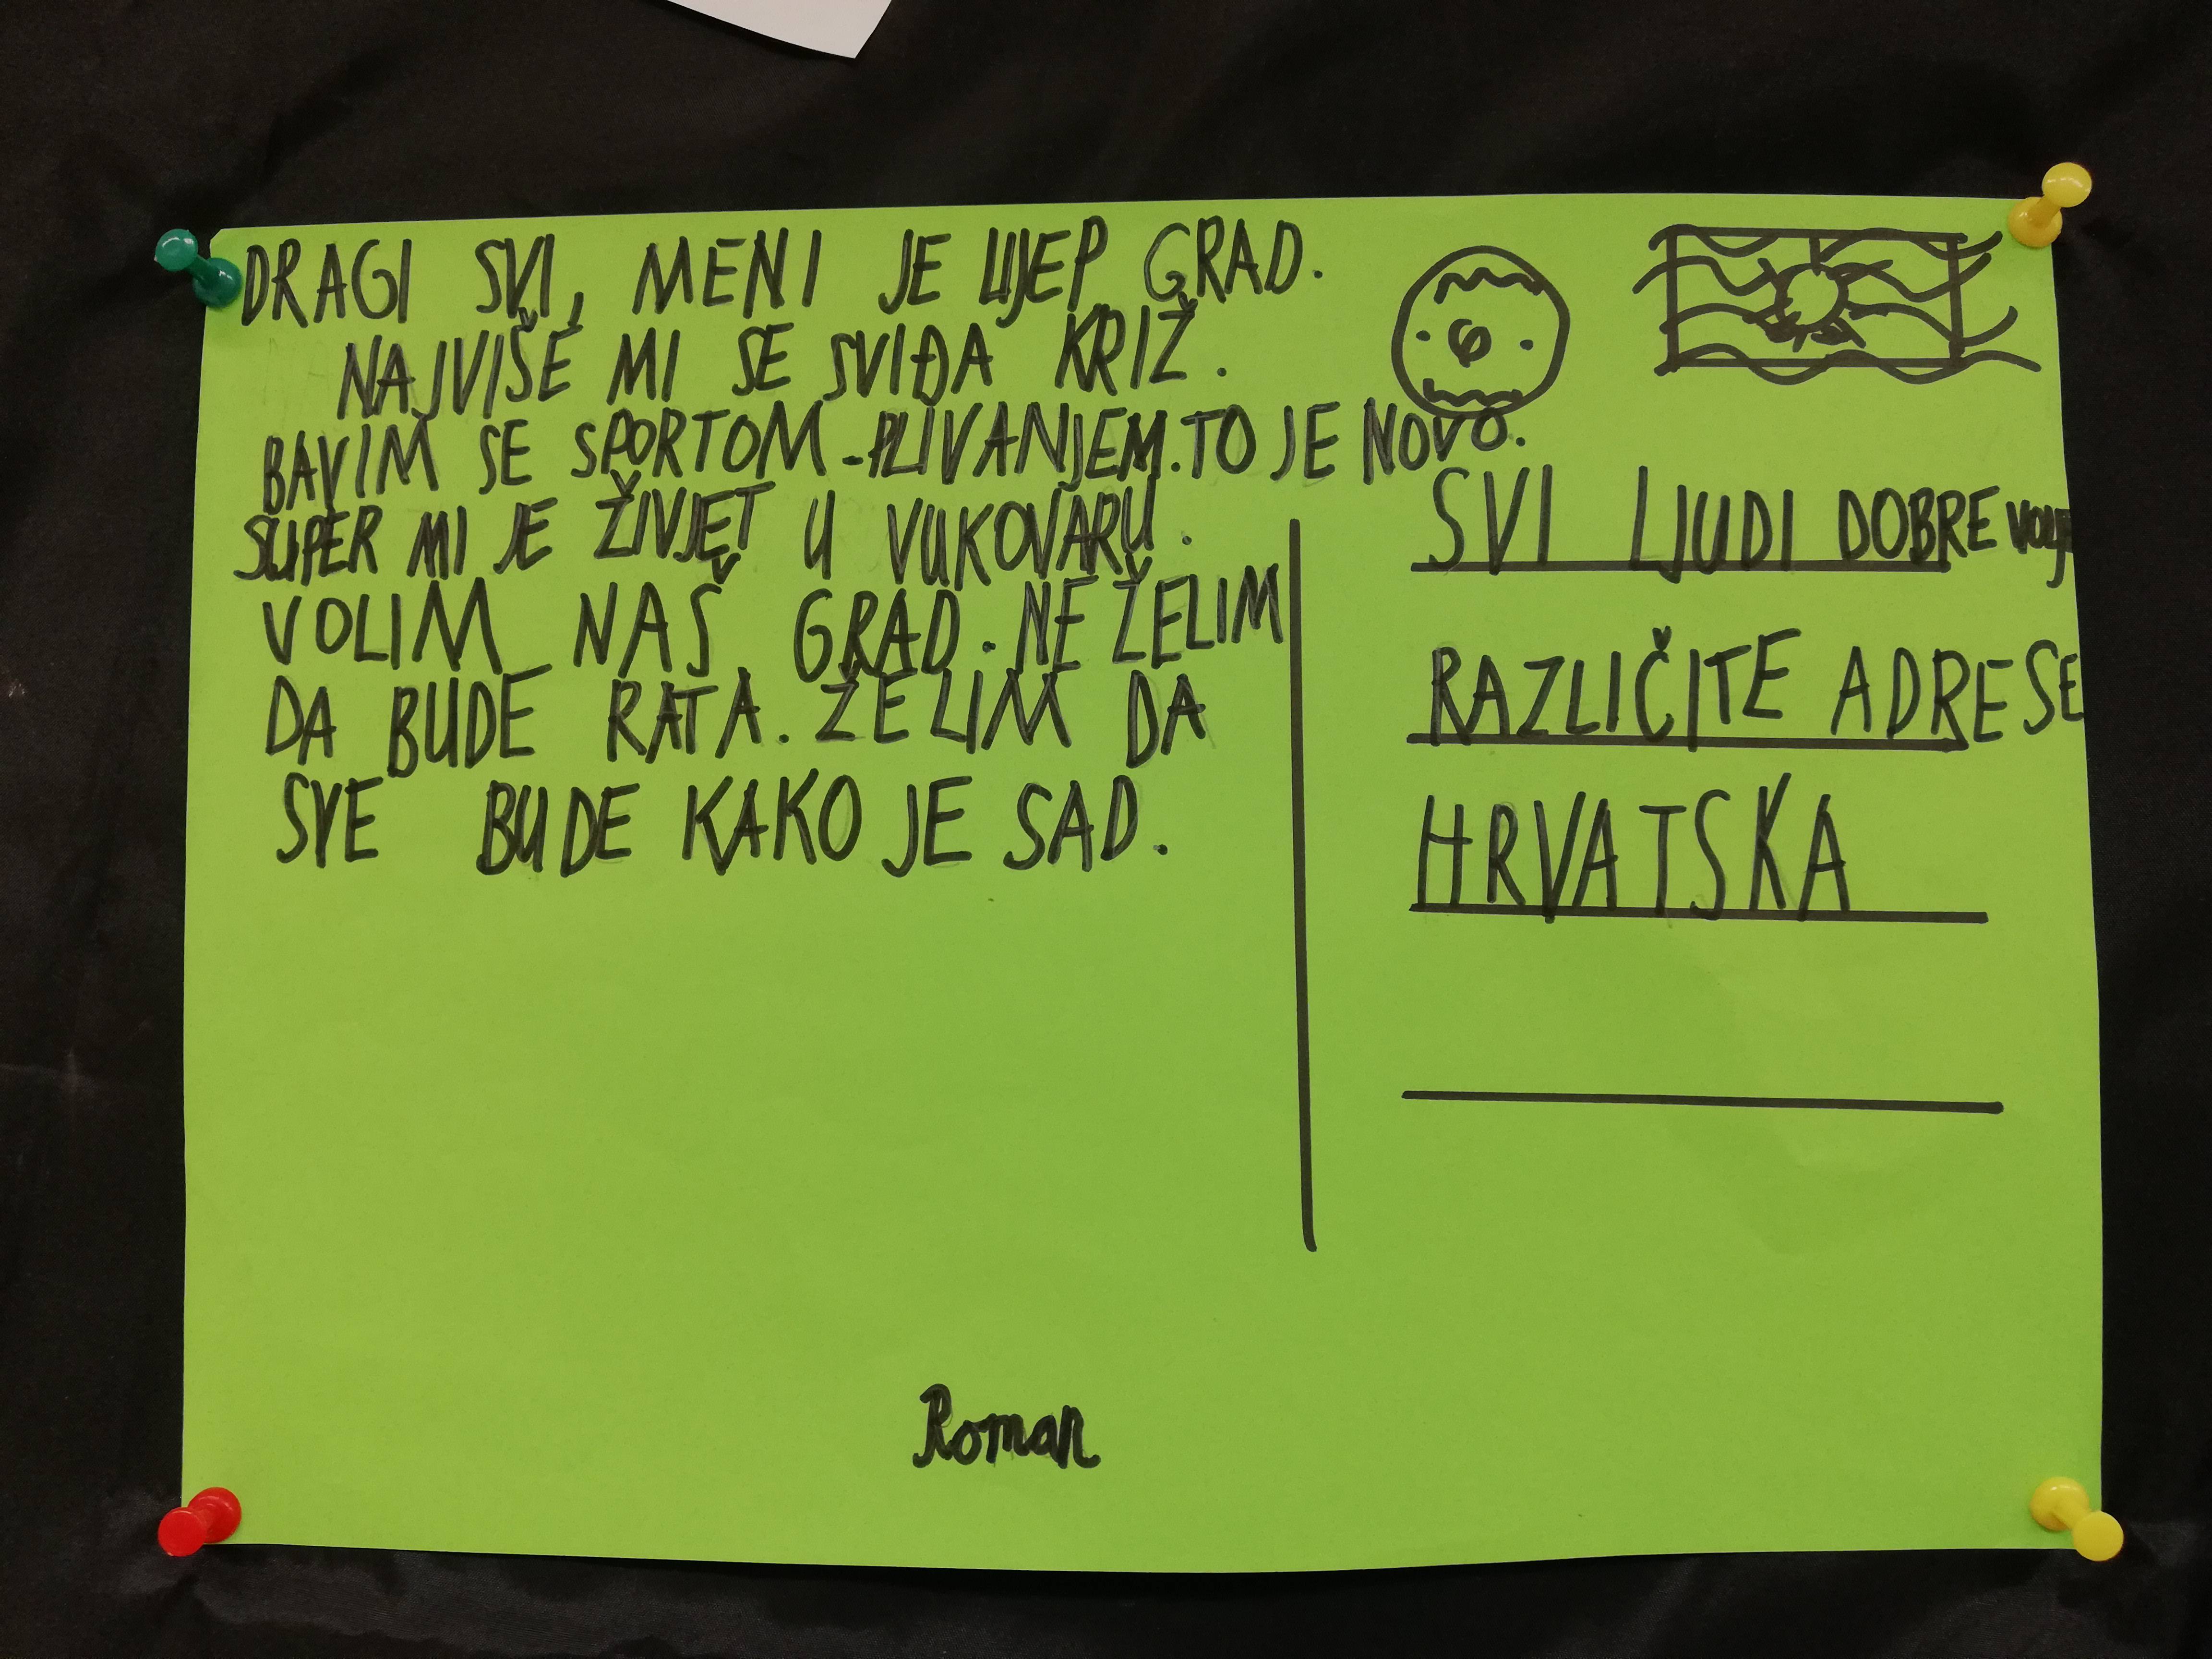 DRAGI SVI, MENI JE LIJEP GRAD.
NAJVIŠE MI SE SVIĐA KRIŽ.
BAVIM SE SPORTOM-PLIVANJEM.TO JE NOVO.
SUPER MI JE ŽIVJET U VUKOVARU.
VOLIM NAŠ GRAD. NE ŽELIM
DA BUDE RATA. ŽELIM DA
SVE BUDE KAKO JE SAD.
Roman
SVI LJUDI DOBRE VOLJE
RAZLIČITE ADRESE
HRVATSKA